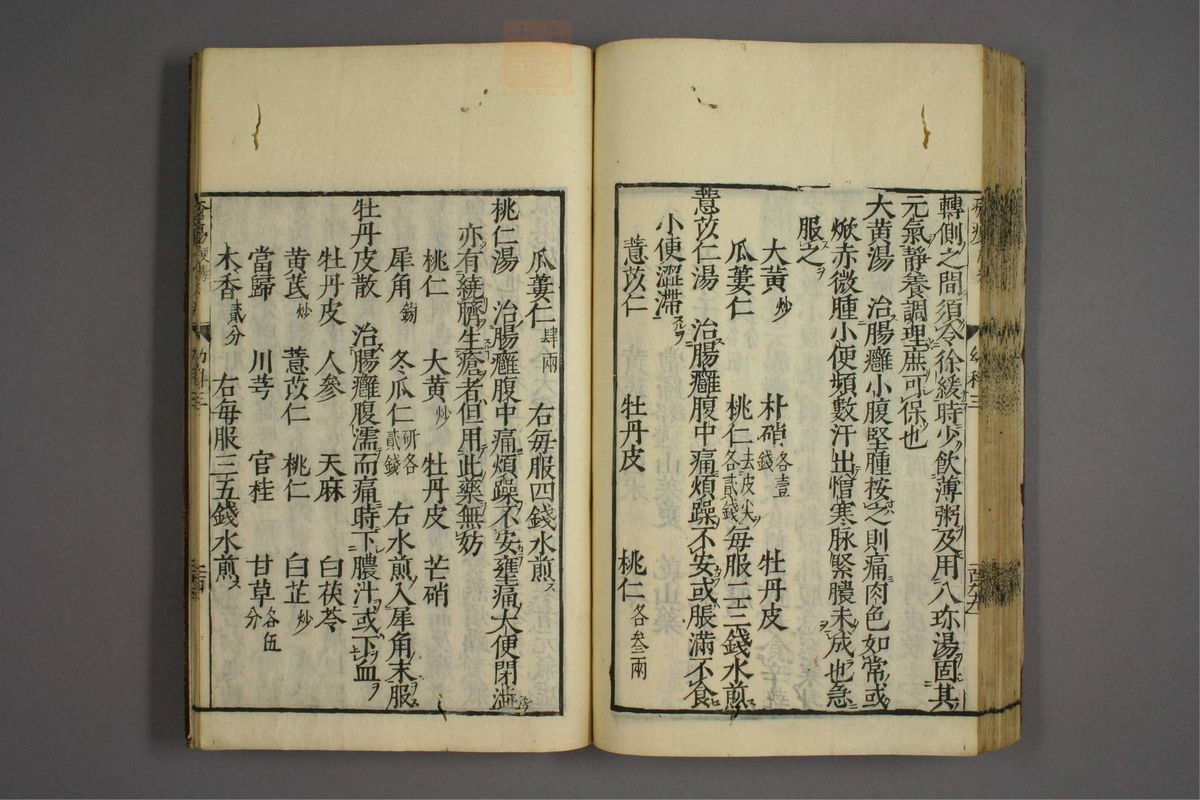 轉側之間須令徐緩時少飲薄粥及用八珎湯固其
元氣靜養調理庶可保也
大黄湯　治腸癰小腹堅腫按之則痛肉色如常或
焮赤微腫小便頻數汗出憎寒脉緊膿未成也急
服之
大黃炒　朴硝各壹錢　牡丹皮
瓜蔞仁　桃仁去皮尖各貳錢　每服二三錢水煎
薏苡仁湯　治腸癰腹中痛煩躁不安或脹滿不食
小便澀滯
薏苡仁　牡丹皮　桃仁各叄兩
瓜蔞仁肆兩　右每服四錢水煎
桃仁湯　治腸癰腹中痛煩躁不安壅痛大便閉澁
亦有繞臍生瘡者但用此藥無妨
桃仁　大黄炒　牡丹皮　芒硝
犀角鎊　冬瓜仁研各貳錢　右水煎入犀角末服
牡丹皮散　治腸癰腹濡而痛時下膿汁或下血
牡丹皮　人參　天麻　白茯苓
黄芪炒　薏苡仁　桃仁　白芷炒
當歸　川芎　官桂　甘草各伍分
木香貳分　右每服三五錢水煎